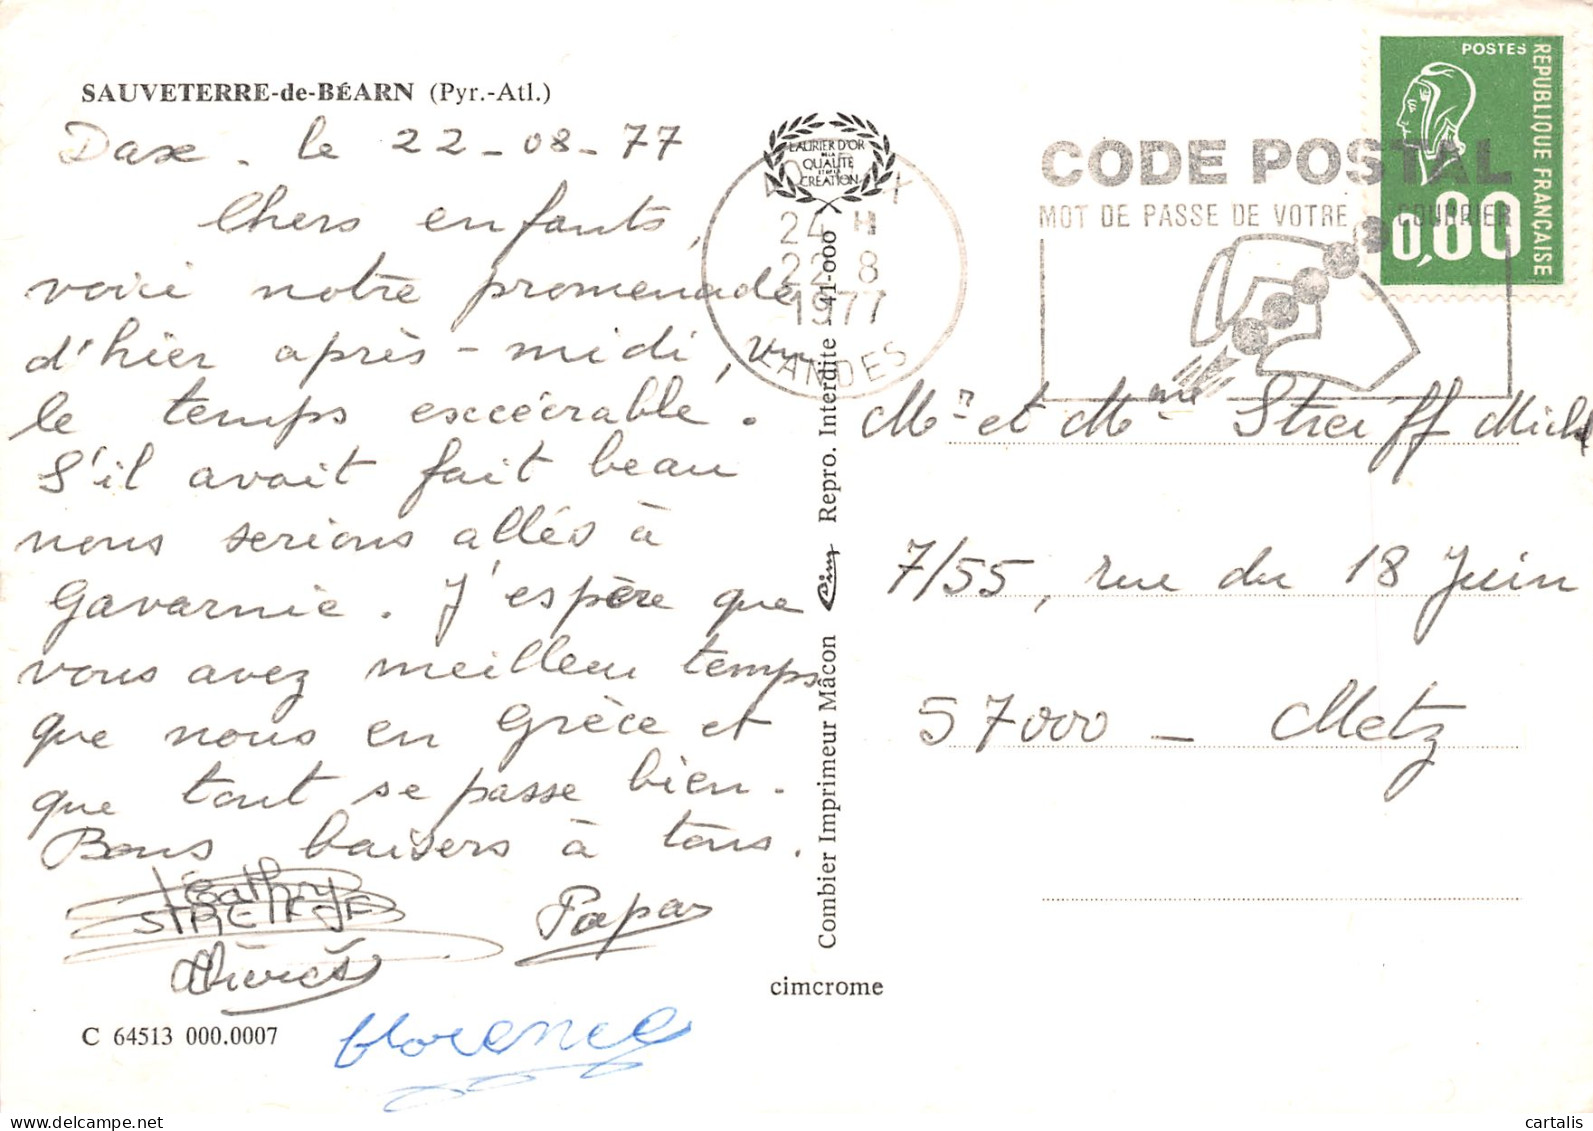 SAUVETERRE-de-BÉARN (Pyr.-Atl.)
Dax. le 22-08-77
Chers enfants,
voici notre promenade
d'hier après-midi, vu
le temps excécrable.
S'il avait fait beau
nous serions allés à
Gavarnie. J'espère que
vous avez meilleur temps
que nous en Grèce et
que tout se passe bien.
Bons baisers à tous.
Cathy
STREIFF
Papa
Florence
C 64513 000.0007
LAURIER D'OR
DE LA
QUALITÉ
ET DE LA
CRÉATION
24 H
22-8
1977
LANDES
Combier Imprimeur Mâcon Cim Repro. Interdite 141-000
cimcrome
CODE POSTAL
MOT DE PASSE DE VOTRE COURRIER
POSTES
REPUBLIQUE FRANÇAISE
0,80
Mr et Mme Streiff Michel
7/55, rue du 18 Juin
57000 - Metz
cartalis